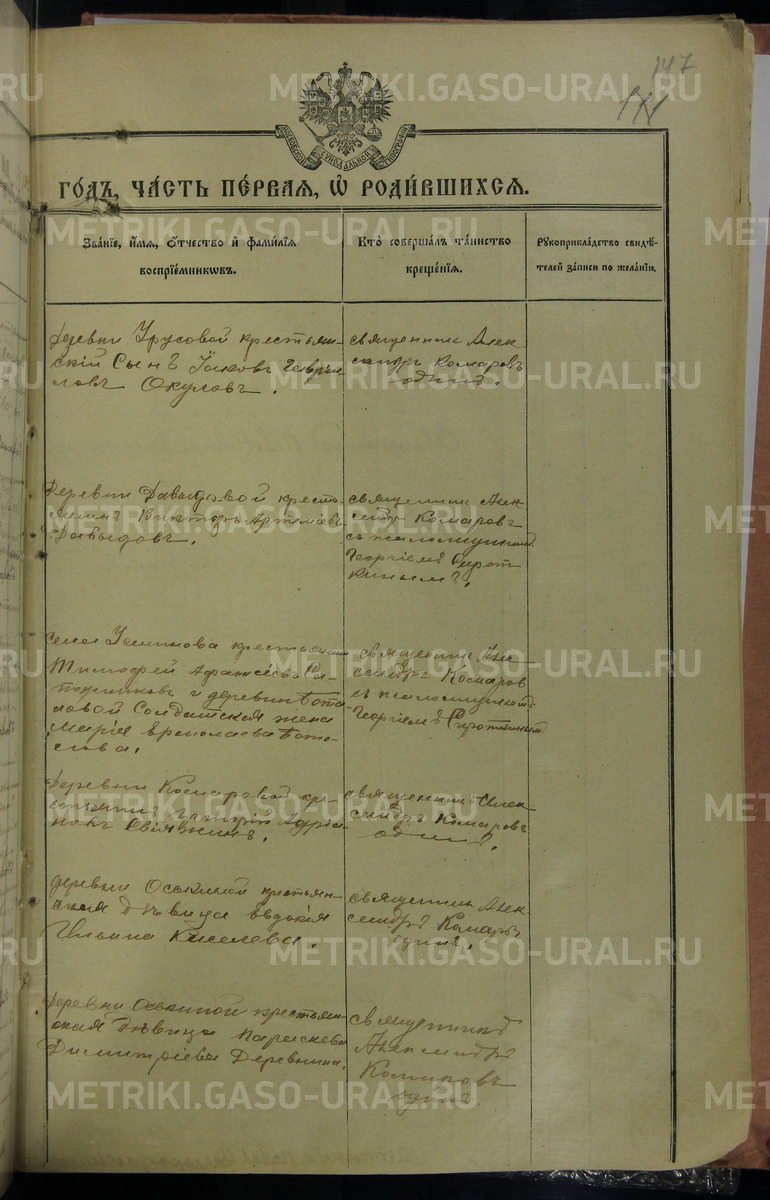 147
МОСКОВСКОЙ СѴНОДАЛЬНОЙ ТИПОГРАФІИ
ГО́ДЪ, ЧА́СТЬ ПЕ́РВАЯ, Ѡ҆ РОДИ́ВШИХСЯ.
Зва́нїе, и҆́мѧ, ѻ҆́тчество и҆ фами́лїѧ
воспрїе́мникѡвъ.
Кто̀ соверша́лъ та́инство
креще́нїѧ.
Рꙋкоприкла́дство свидѣ́-
телей за́писи по жела́нїю.
Деревни Урусовой крестьян-
скій Сынъ Іаковъ Гаврiи-
ловъ Окуловъ.
священникъ Алек-
сандръ Комаровъ
одинъ.
Деревни Давыдовой кресть-
янинъ Викторъ Артемiевъ
Давыдовъ.
священникъ Алек-
сандръ Комаровъ
съ псаломщикомъ
Георгiемъ Сирот-
кинымъ.
села крестьянинъ
Тимофей
и деревни Бота-
ловой Солдатская жена
Марiя Бота-
лова.
священникъ Алек-
сандръ Комаров
съ псаломщикомъ
Георгiемъ Сироткинымъ
Деревни Комаровой кре-
стьянинъ Адрiа-
новъ
священникъ Алек-
сандръ Комаровъ
одинъ.
деревни Осокиной крестьян-
ская дѣвица Евдокiя
Ильина Киселева.
священникъ Алек-
сандръ Комаровъ
одинъ.
Деревни Осокиной крестьян-
ская дѣвица Параскева
Димитрiева Деревнина.
священникъ
Александръ
Комаровъ
одинъ
METRIKI.GASO-URAL.RU